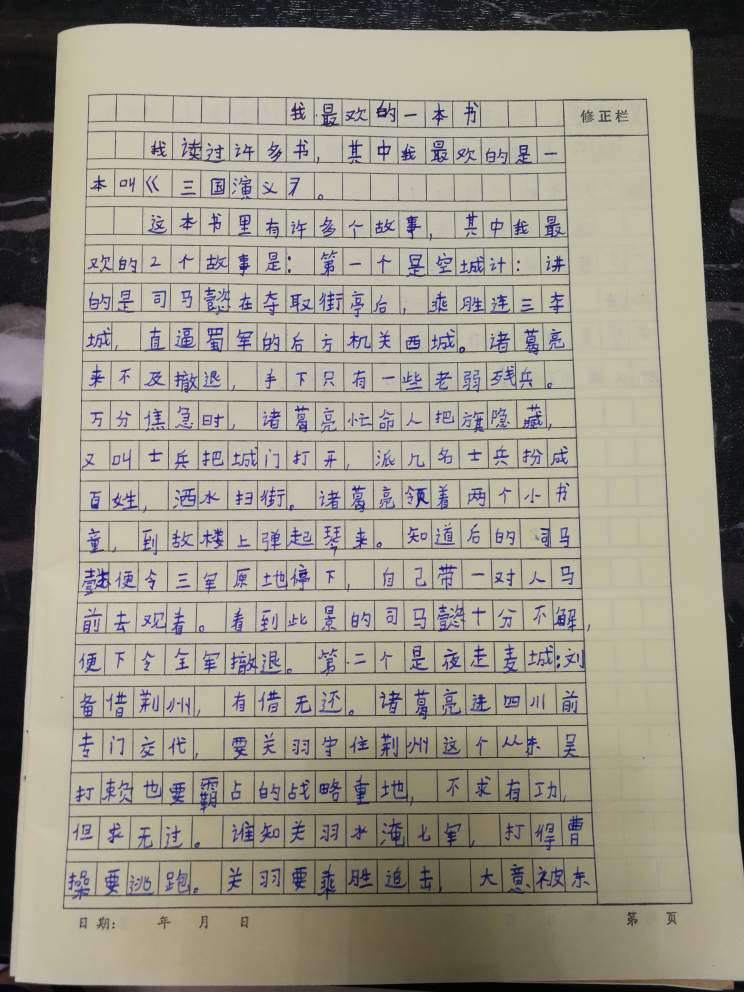 我最欢的一本书
修正栏
我读过许多书，其中我最欢的是一
本叫《三国演义》。
这本书里有许多个故事，其中我最
欢的2个故事是：第一个是空城计：讲
的是司马懿在夺取街亭后，乘胜连三李
城，直逼蜀军的后方机关西城。诸葛亮
来不及撤退，手下只有一些老弱残兵。
万分焦急时，诸葛亮忙命人把旗隐藏，
又叫士兵把城门打开，派几名士兵扮成
百姓，洒水扫街。诸葛亮领着两个小书
童，到敌楼上弹起琴来。知道后的司马
懿便令三军原地停下，自己带一对人马
前去观看。看到此景的司马懿十分不解，
便下令全军撤退。第二个是夜走麦城：刘
备借荆州，有借无还。诸葛亮进四川前
专门交代，要关羽守住荆州这个从东吴
打赖也要霸占的战略重地，不求有功，
但求无过。谁知关羽水淹七军，打得曹
操要逃跑。关羽要乘胜追击，大意被东
日期： 年 月 日
第 页